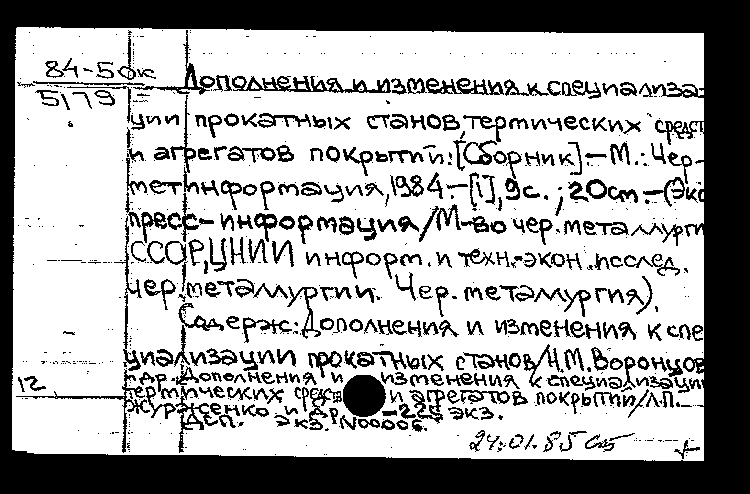 84-5ок
5179
Дополнения и изменения к специализа-
ции прокатных станов, термических средст
и агрегатов покрытий: [Сборник].- М.: Чер-
метинформация, 1984.-[1], 9с.; 20см.-(Экс
пресс-информация/М-во чер. металлурги
СССР, ЦНИИ информ. и техн.-экон. исслед.
чер. металлургии. Чер. металлургия).
Содерж.: Дополнения и изменения к спе
циализации прокатных станов/Н.М. Воронцов
и др. Дополнения и изменения к специализации
12
термических средств и агрегатов покрытий/Л.П.
Журженко и др. -225 экз.
Деп. экз. №00006.
24.01.85